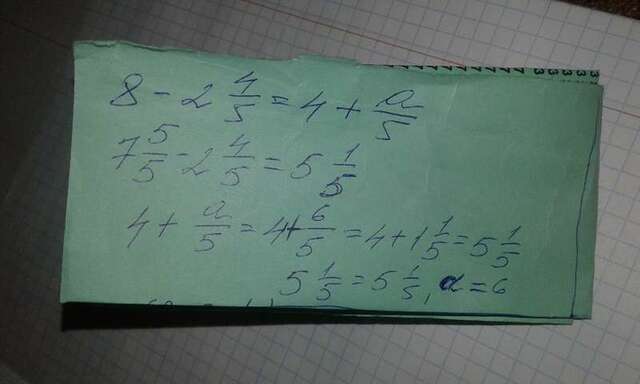 8 - 2 4/5 = 4 + a/5
7 5/5 - 2 4/5 = 5 1/5
4 + a/5 = 4 + 6/5 = 4 + 1 1/5 = 5 1/5
5 1/5 = 5 1/5, a = 6